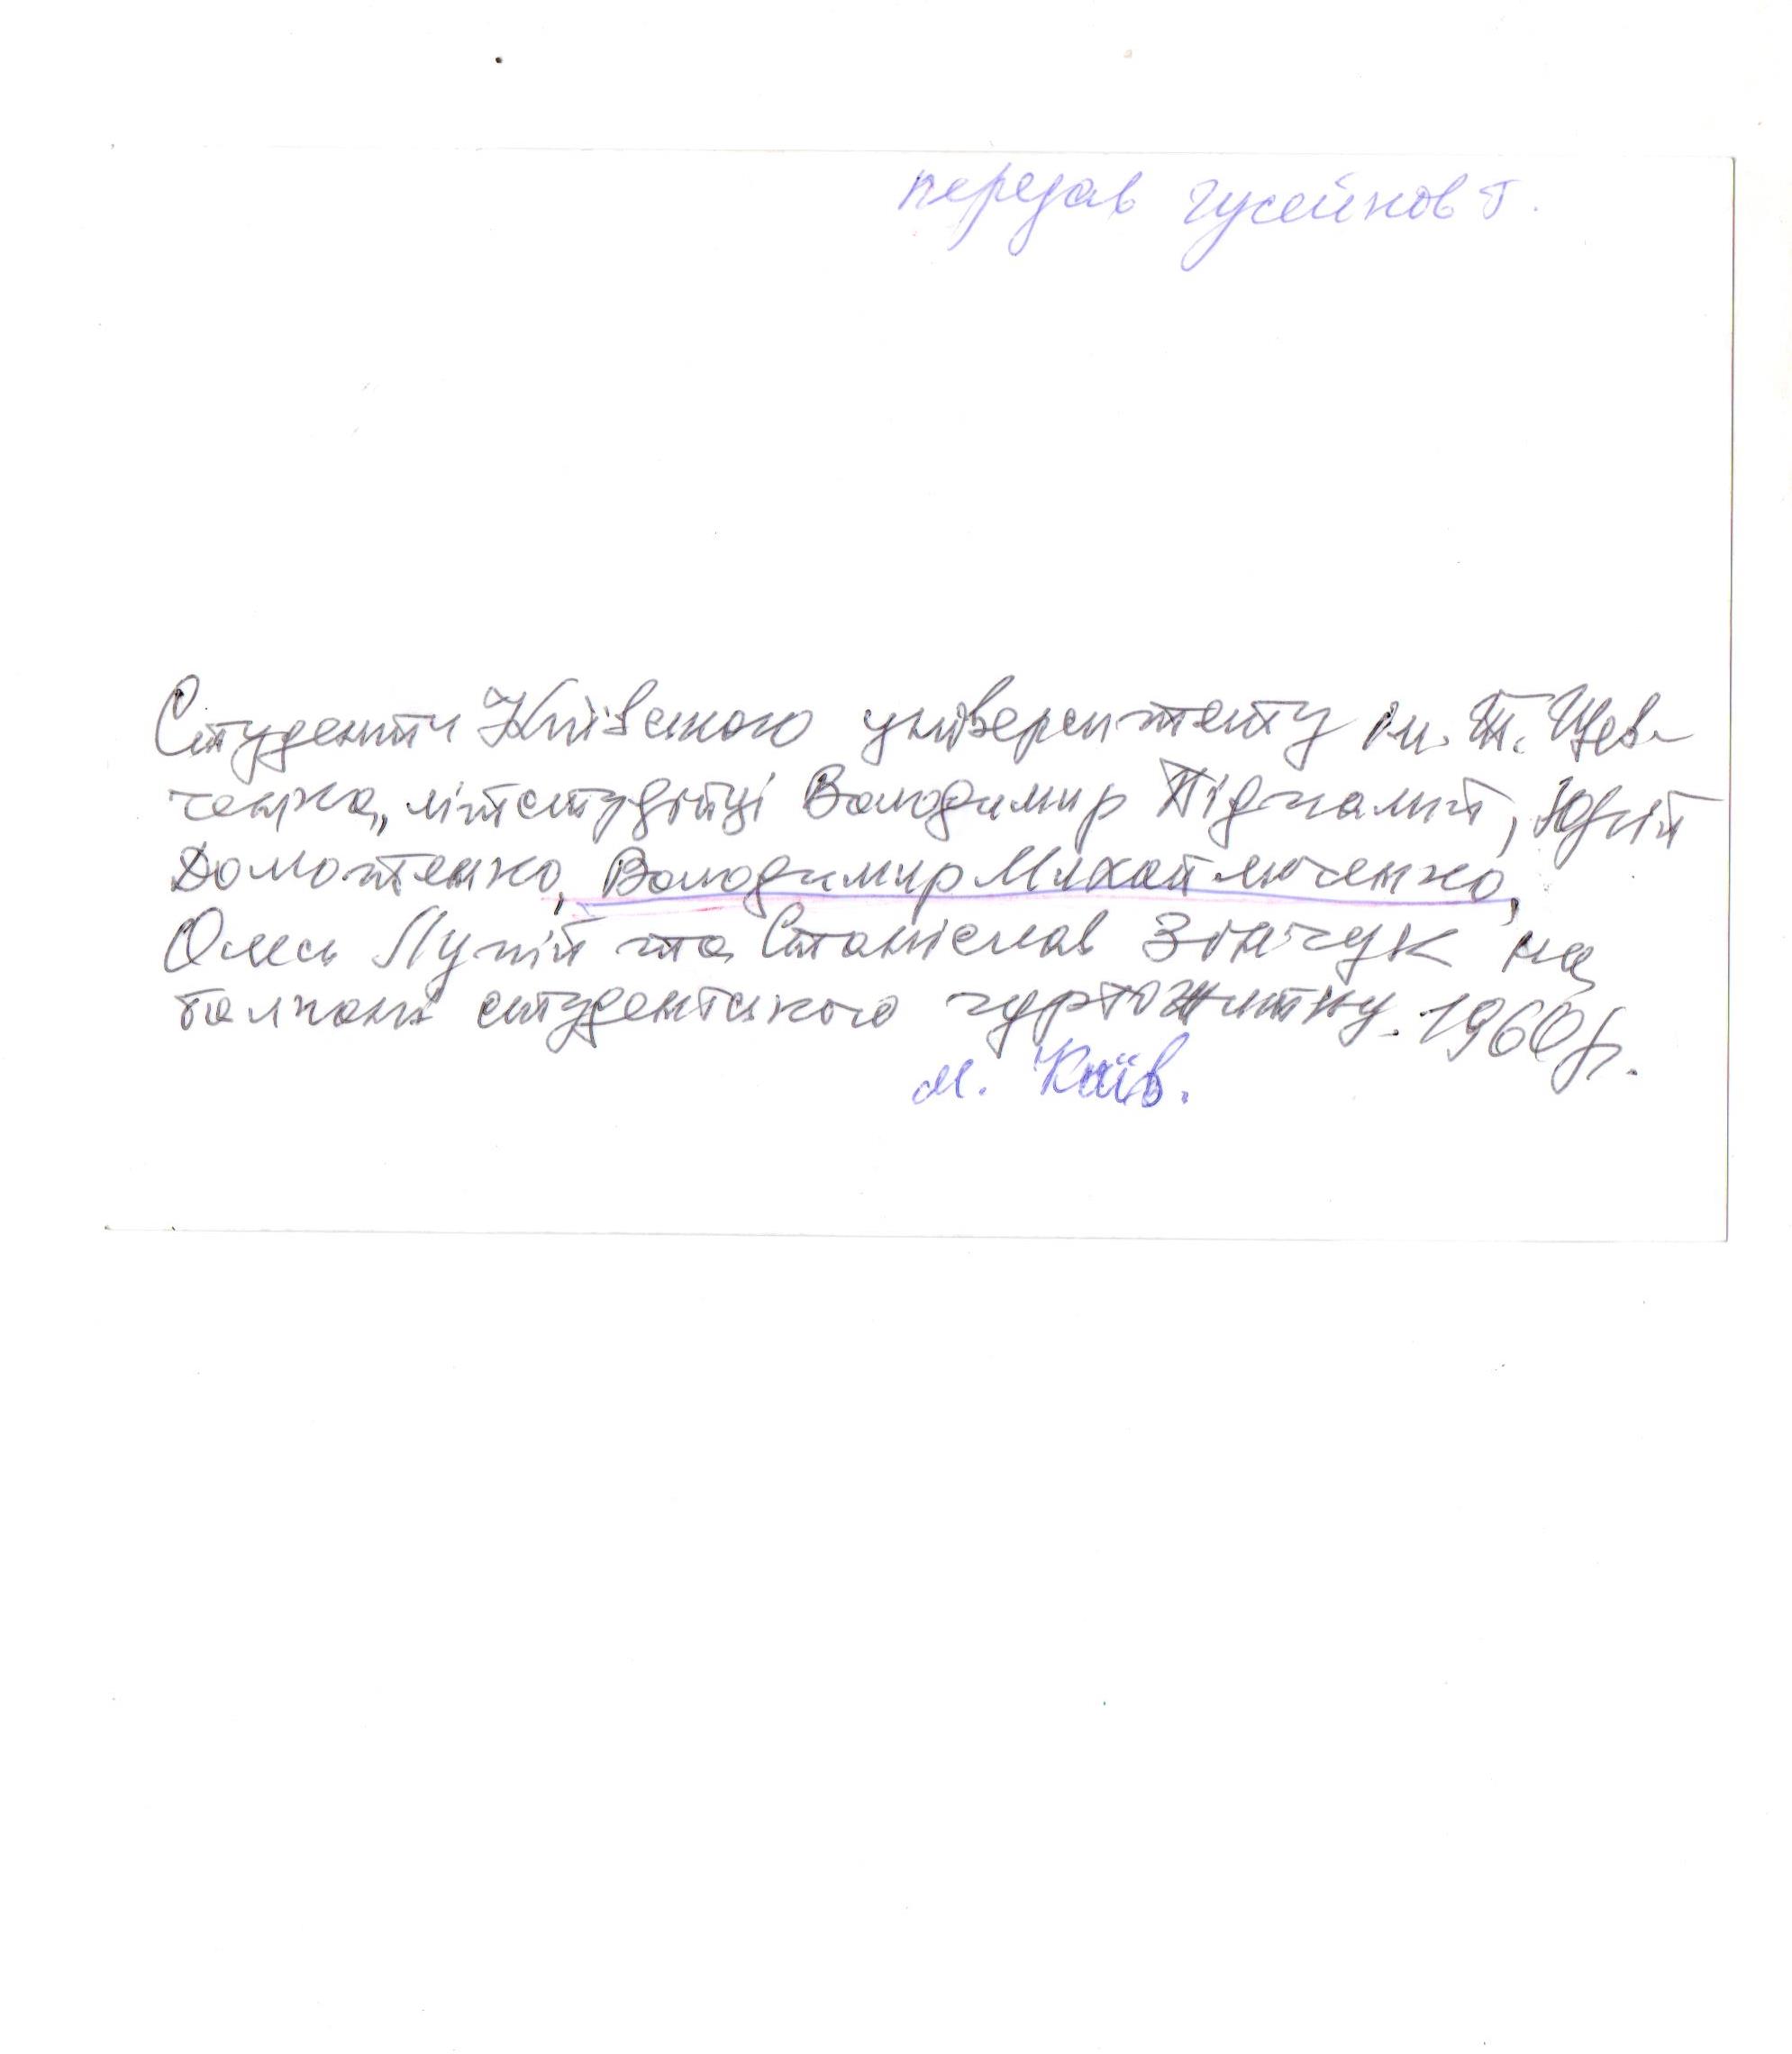 передав Гусейнов Г.
Студенти Київського університету ім. Т. Шев-
ченка, літстудійці Володимир Підпалий, Юрій
Домотенко, Володимир Михайлюченко,
Олесь Лупій та Станіслав Зінчук на
балконі студентського гуртожитку. 1960 р.
м. Київ.